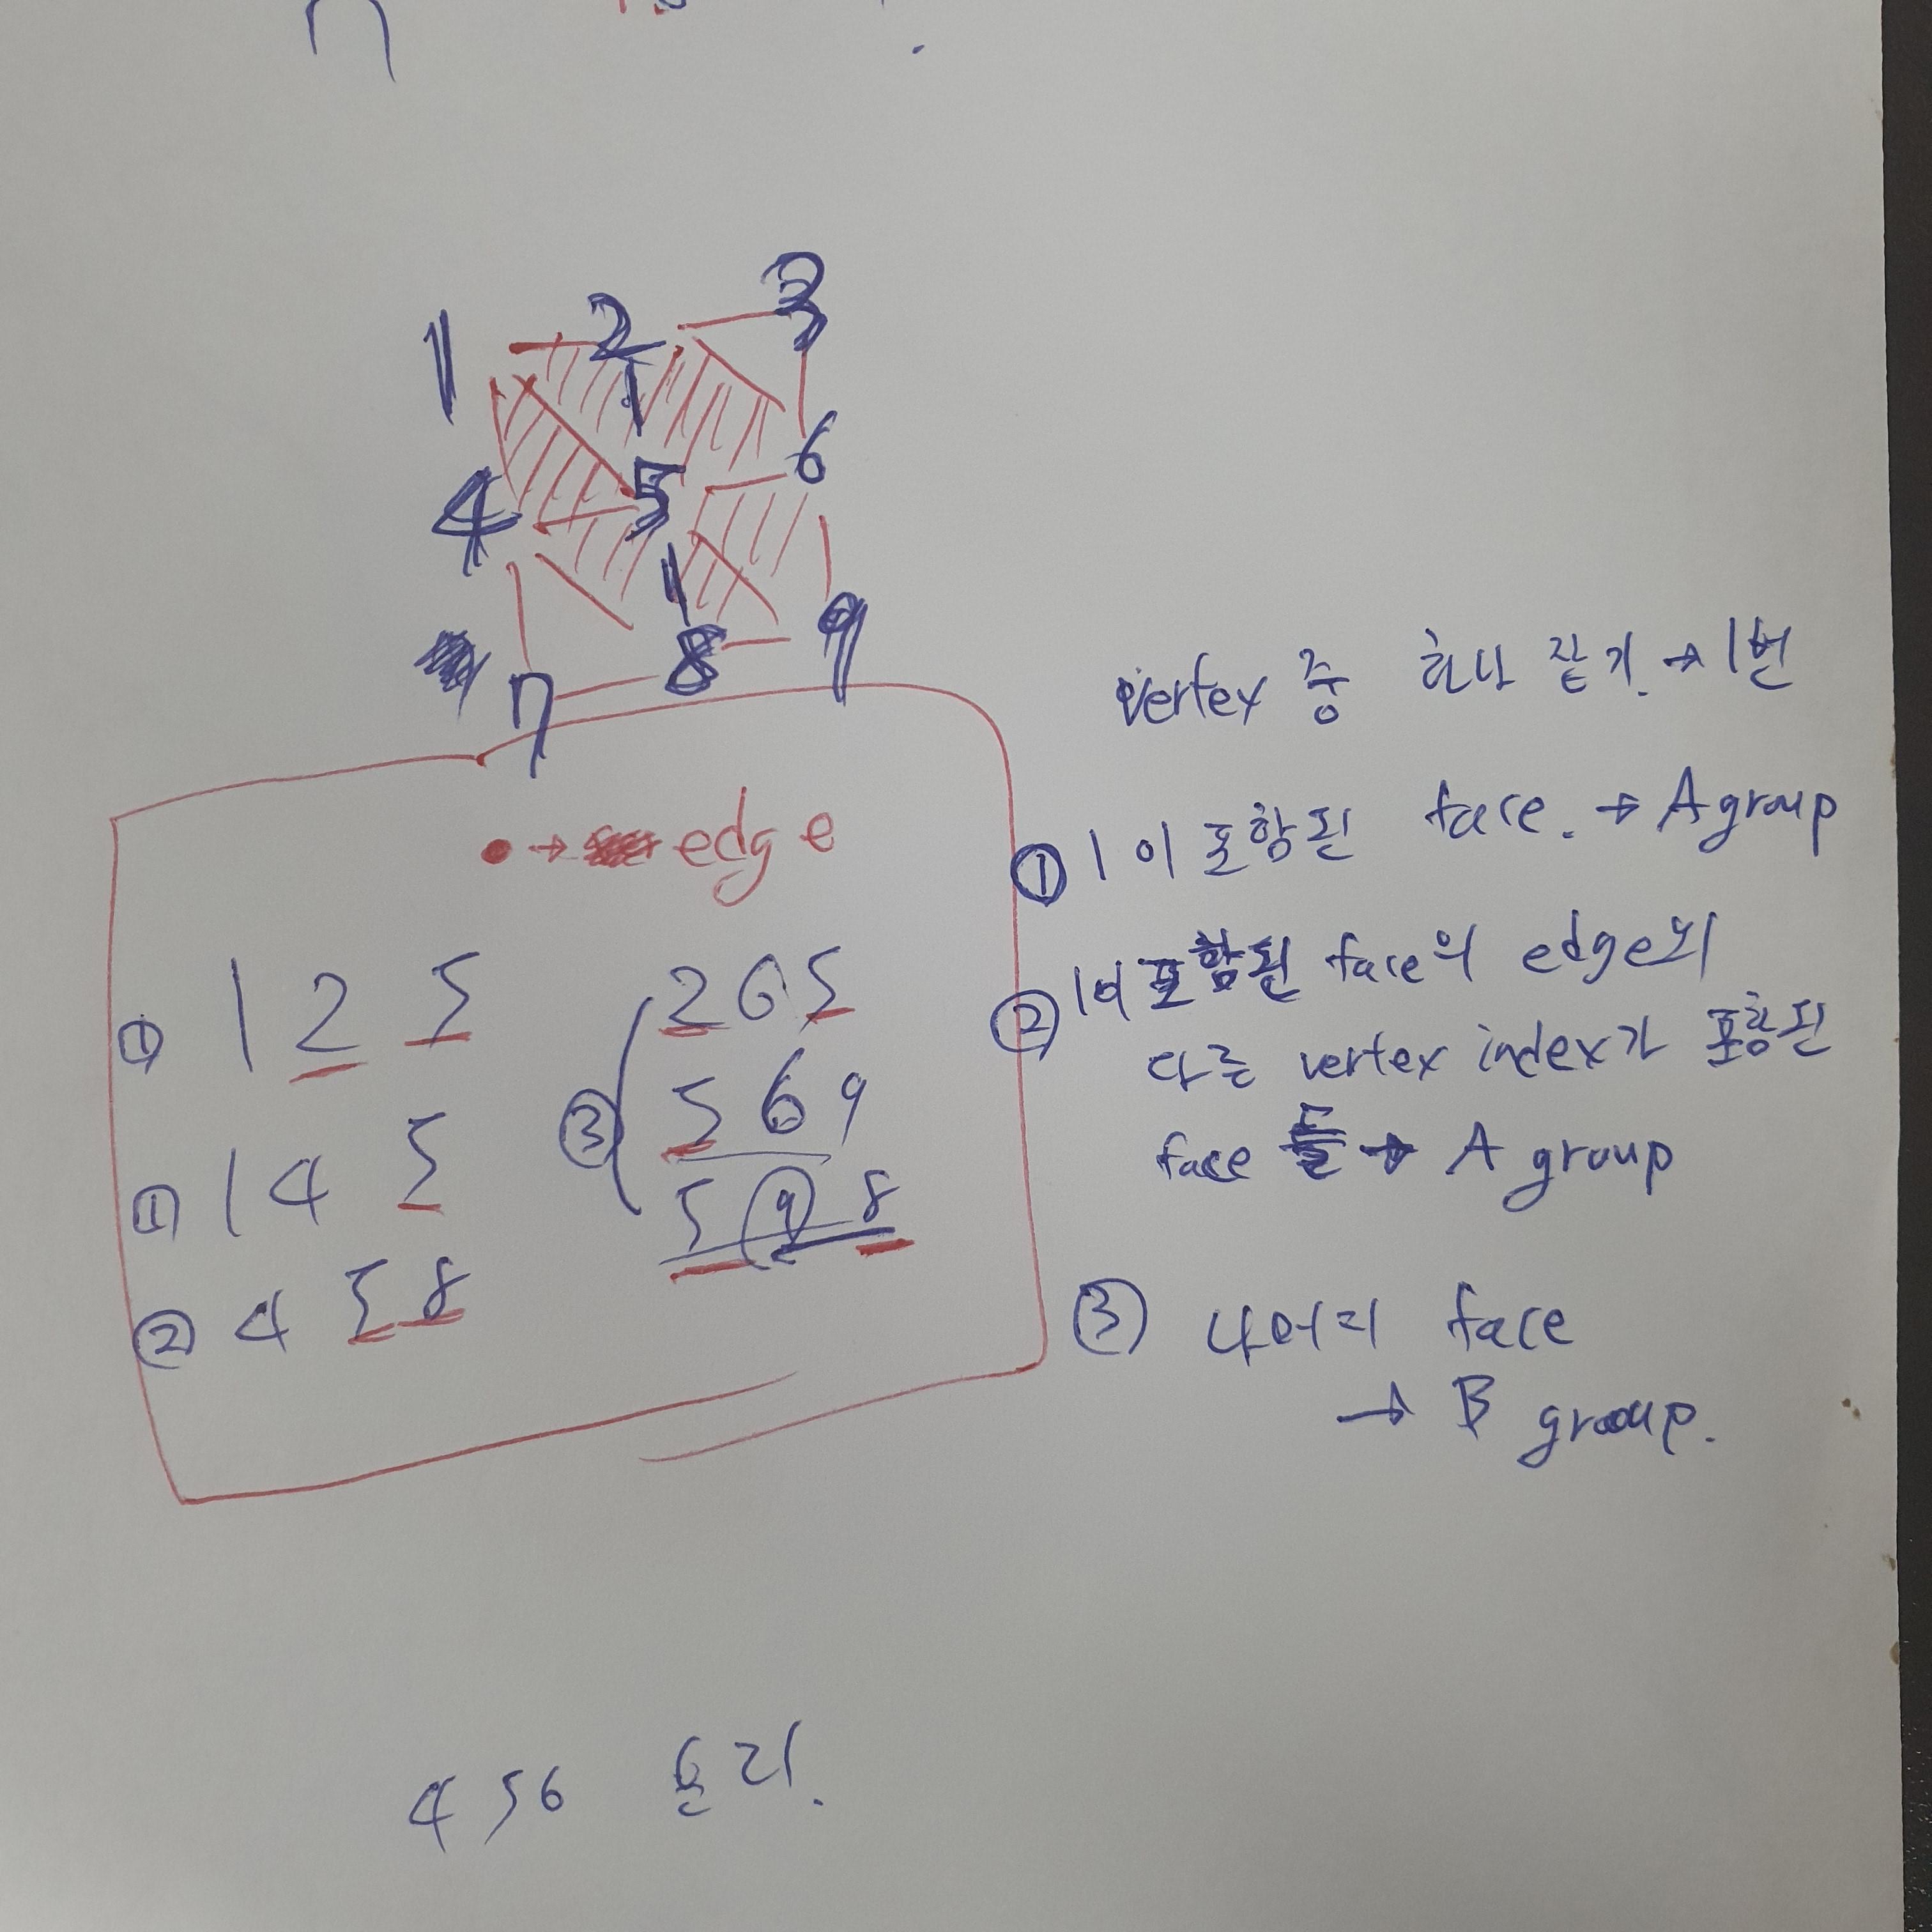 1 2 3
4 5 6
7 8 9
• → edge
① 1 2 5
① 1 4 5
② 4 5 8
③ 2 6 5
5 6 9
5 9 8
vertex 중 하나 잡기. → 1번
① 1이 포함된 face. → A group
② 1이 포함된 face의 edge의
다른 vertex index가 포함된
face 들 → A group
③ 나머지 face
→ B group.
4 5 6 분리.